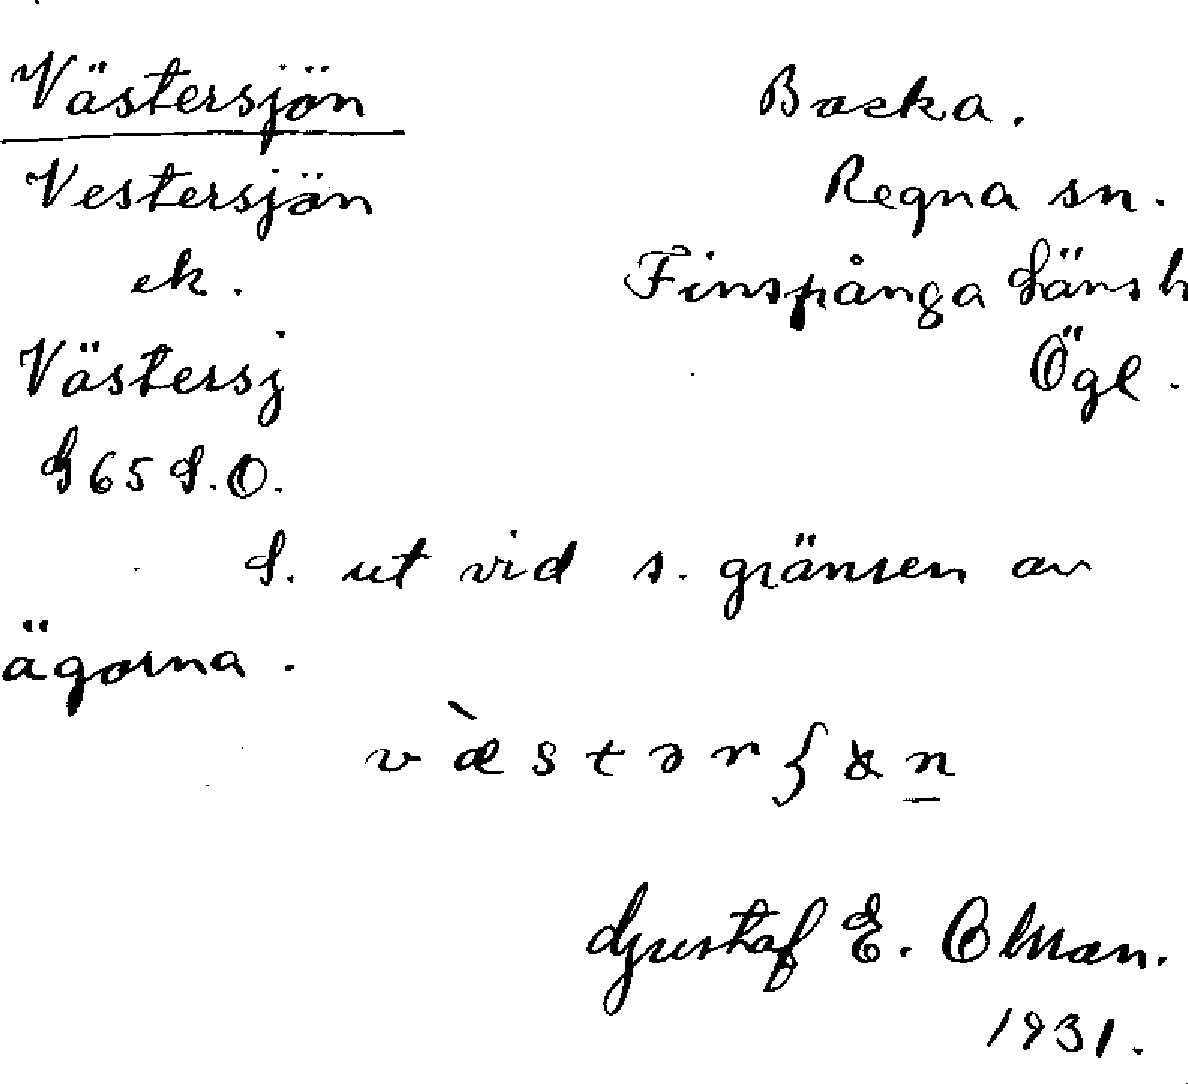 Västersjön
Backa.
Vestersjön
Regna sn.
ek.
Finspånga Läns h
Västersj
Ögl.
G65 S.O.
S. ut vid s. gränsen av
ägorna.
Gustaf E. Olman.
1931.